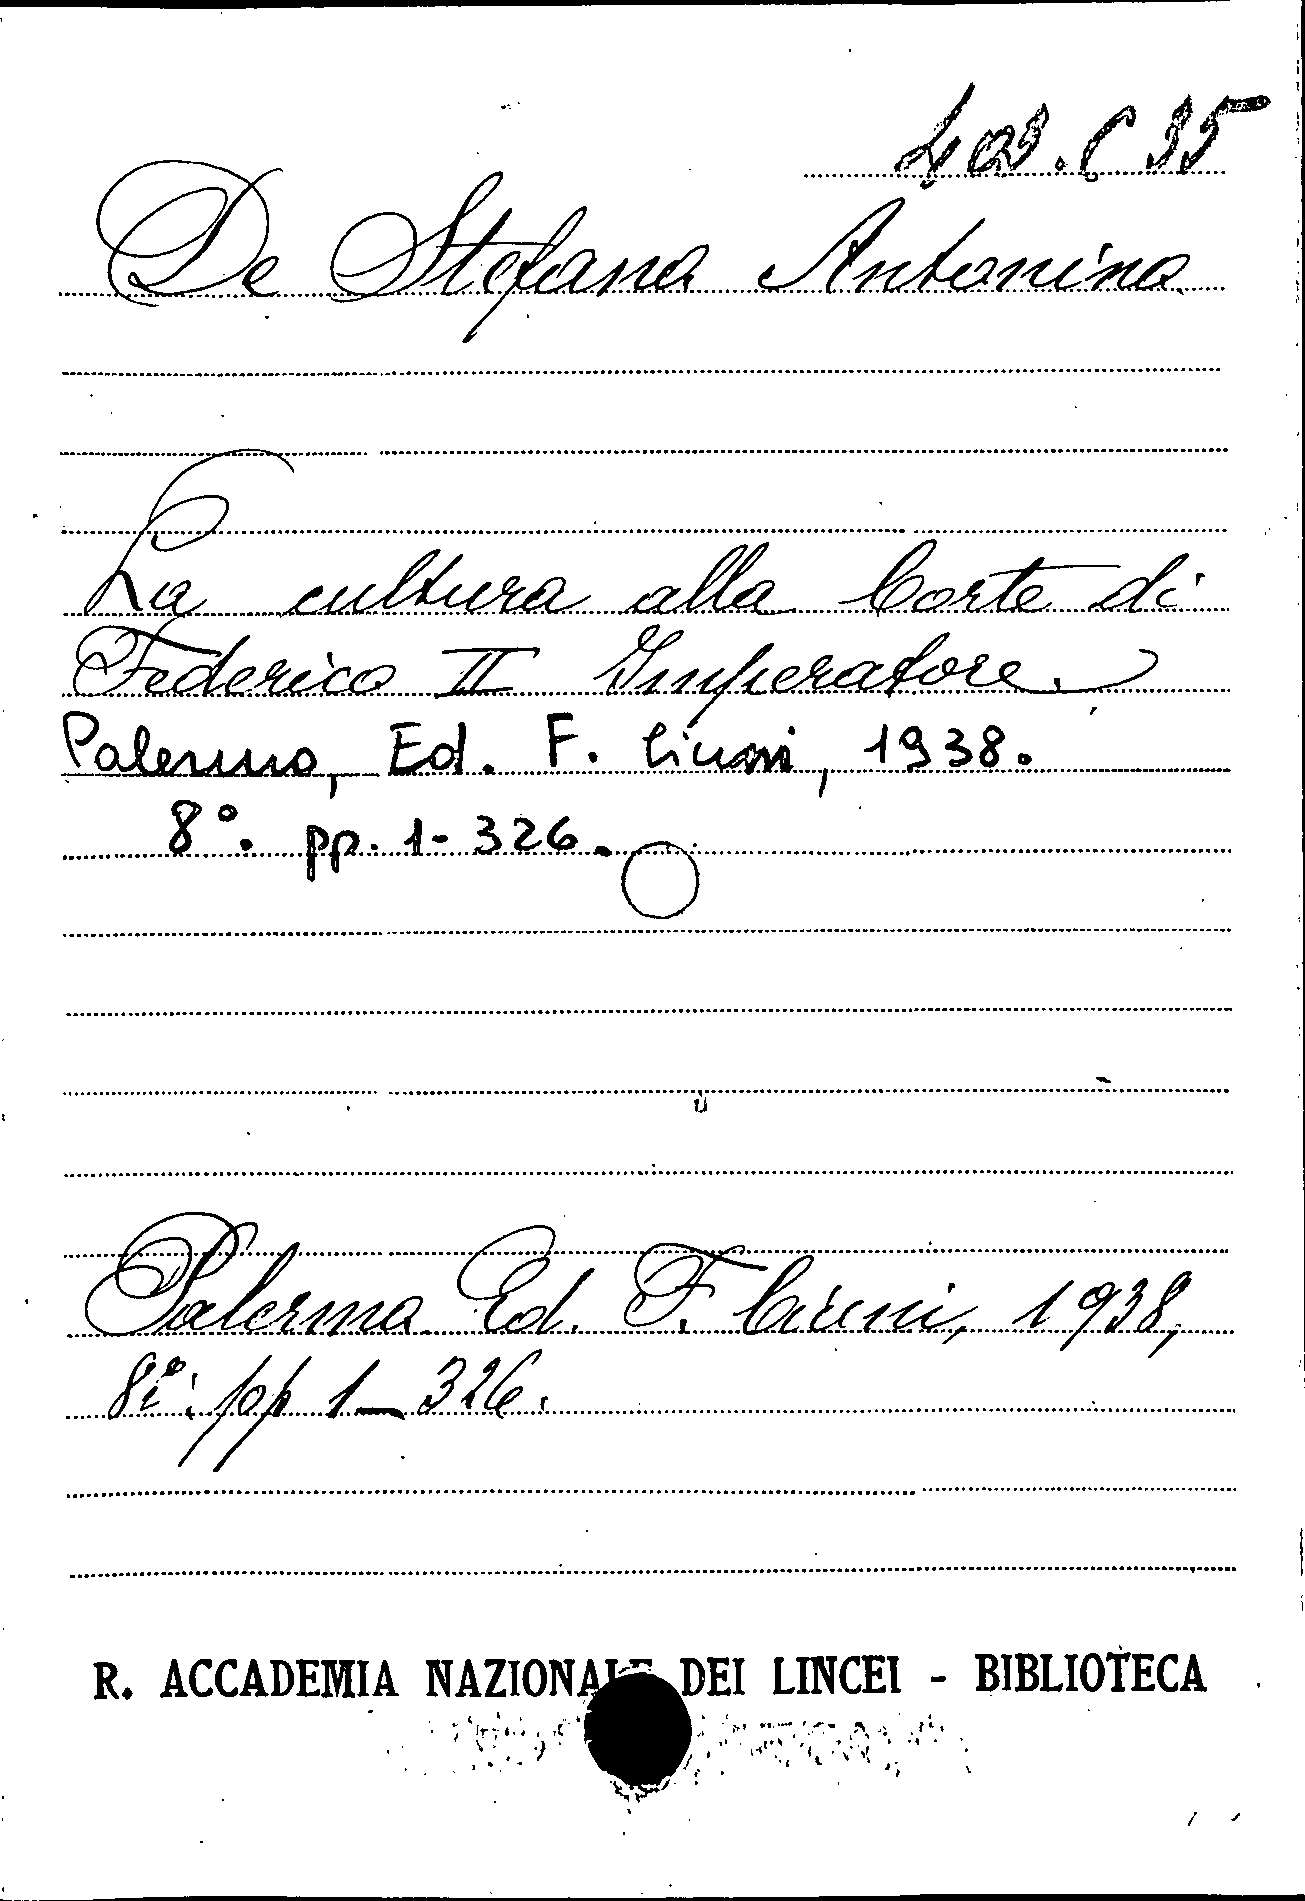 403.C 35
De Stefano Antonino
La cultura alla Corte di
Federico II Imperatore.
Palermo, Ed. F. Ciuni, 1938.
8°. pp. 1-326.
Palermo Ed. F. Ciuni, 1938,
8°: pp 1-326.
R. ACCADEMIA NAZIONALE DEI LINCEI - BIBLIOTECA